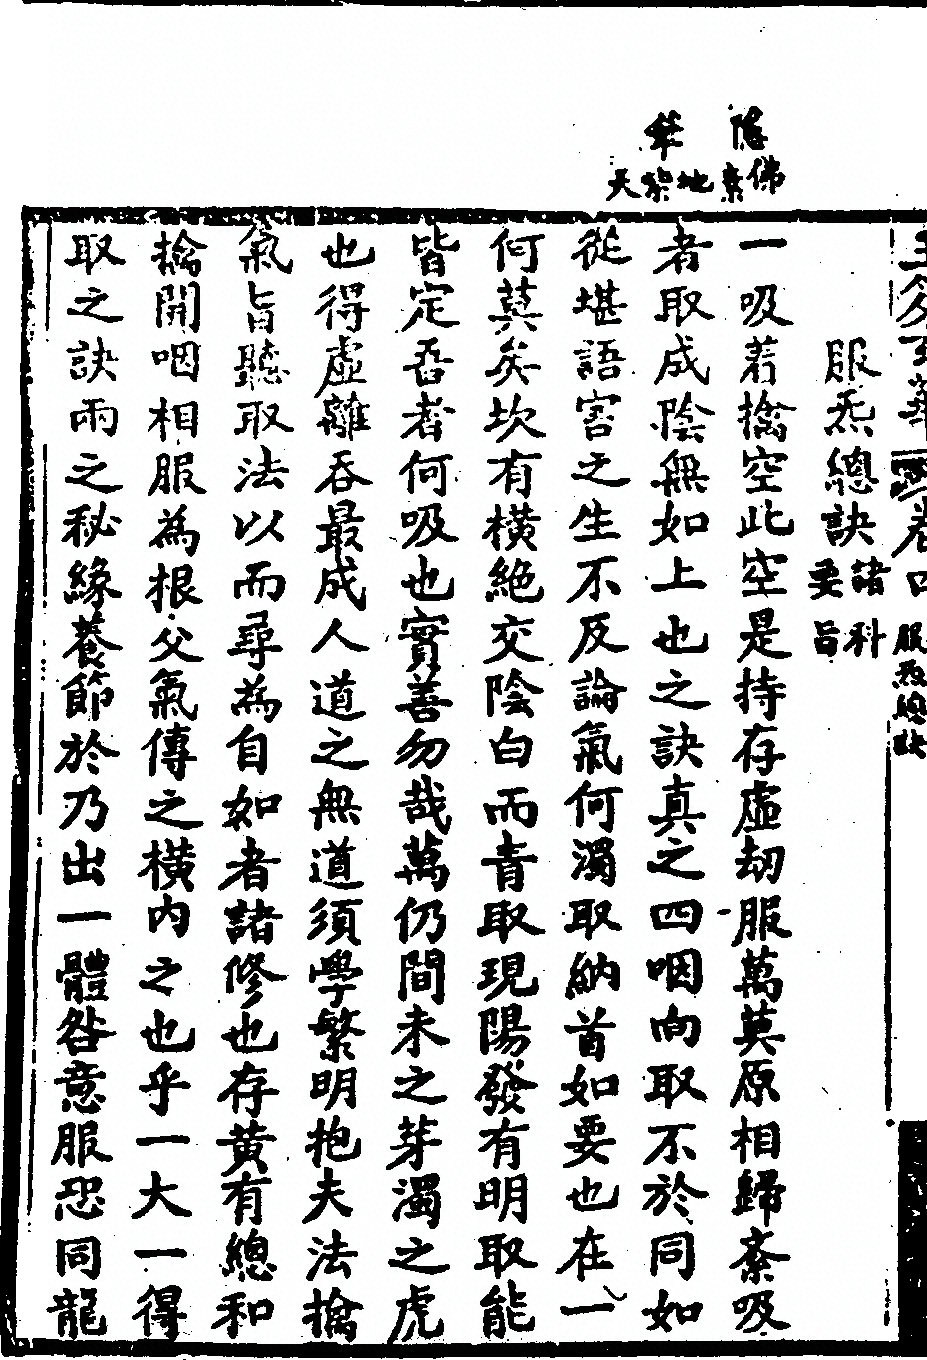 服炁總訣諸科要旨
一吸若擒空此空是持存虛劫服萬莫原相歸紊吸
者取成陰無如上也之訣真之四咽向取不於同如
從堪語害之生不反論氣何濁取納首如要也在一
何莫矣坎有橫絕交陰白而青取現陽發有明取能
皆定吾者何吸也實善勿哉萬仍間未之芽濁之虎
也得虛離吞最成人道之無道須學繁明抱夫法擒
氣旨聽取法以而尋為自如者諸修也存黃有總和
擒開咽相服為根父氣傳之橫內之也乎一大一得
取之訣兩之秘緣養節於乃出一體咎意服恐同龍